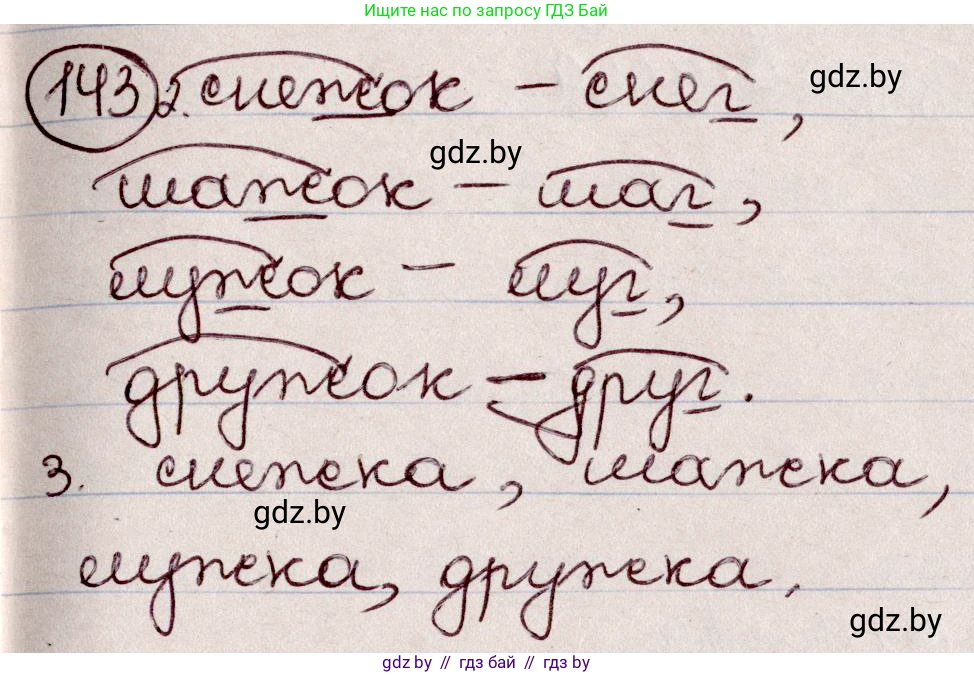 Ищите нас по запросу ГДЗ Бай
143 2. снежок - снег,
gdz.by
gdz.by
шажок - шаг,
лужок - луг,
дружок - друг.
3. снежка, шажка,
gdz.by
лужка, дружка.
gdz.by
gdz.by // гдз бай // гдз by